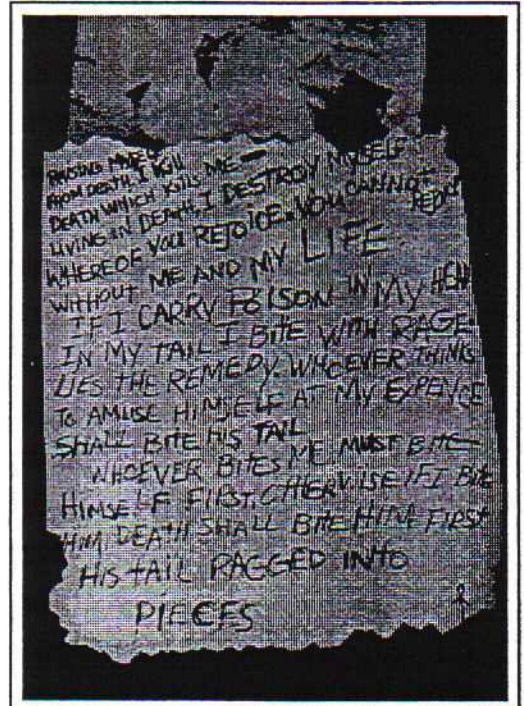 RAISING MYSELF
FROM DEATH, I KILL
DEATH WHICH KILLS ME —
LIVING IN DEATH, I DESTROY MYSELF
WHEREOF YOU REJOICE. YOU CANNOT REJOICE
WITHOUT ME AND MY LIFE
IF I CARRY POISON IN MY HEAD
IN MY TAIL I BITE WITH RAGE
LIES THE REMEDY. WHOEVER THINKS
TO AMUSE HIMSELF AT MY EXPENCE
SHALL BITE HIS TAIL
WHOEVER BITES ME MUST BITE
HIMSELF FIRST, OTHERWISE IF I BITE
HIM, DEATH SHALL BITE HIM FIRST
HIS TAIL RAGGED INTO
PIECES